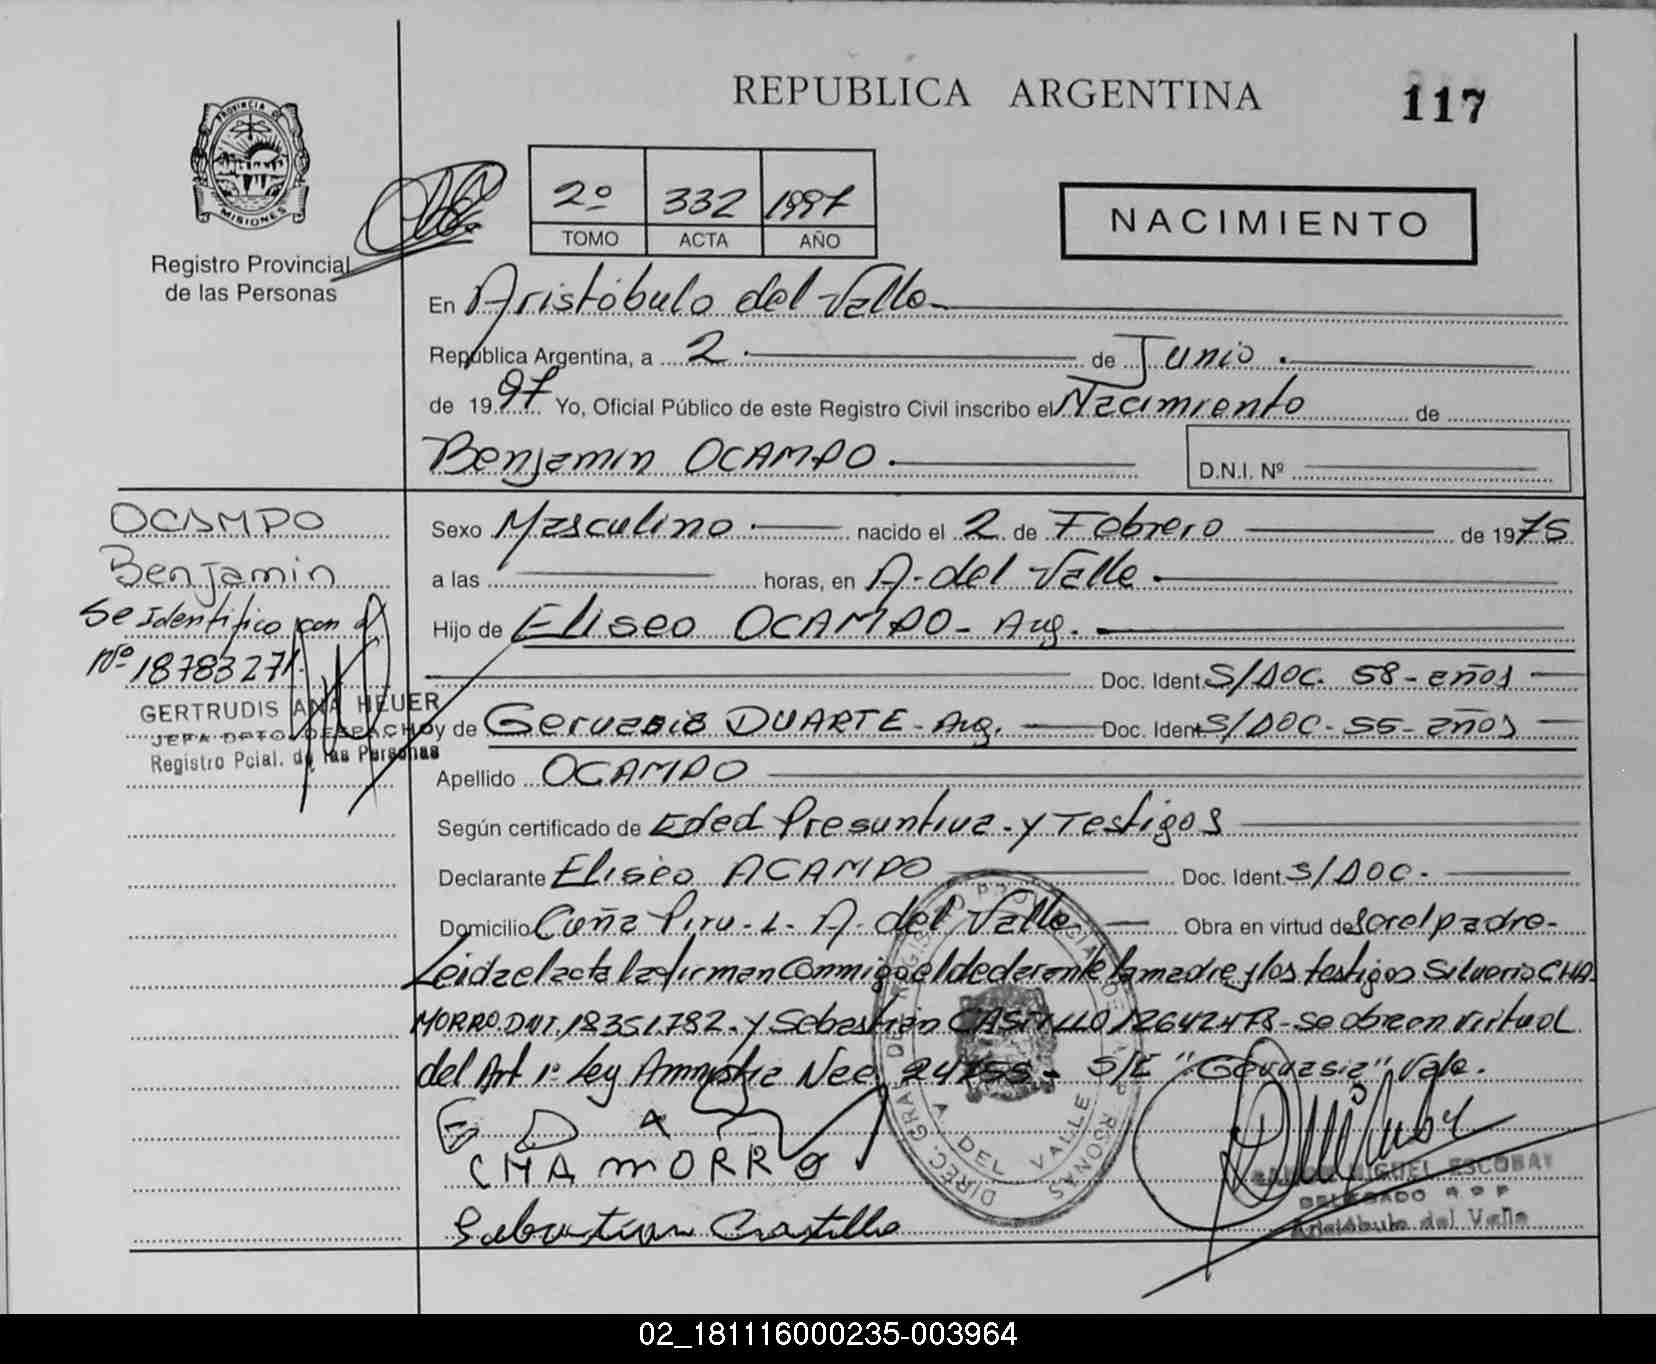 REPUBLICA ARGENTINA
117
PROVINCIA DE MISIONES
Registro Provincial
de las Personas
2º 332 1997
TOMO ACTA AÑO
NACIMIENTO
En Aristóbulo del Valle
República Argentina, a 2 de Junio
de 1997 Yo, Oficial Público de este Registro Civil inscribo el Nacimiento de
Benjamin OCAMPO D.N.I. Nº
OCAMPO
Benjamin
Se Identifico con
Nº 18783271.
GERTRUDIS ANA HEUER
JEFA DPTO. DESPACHO
Registro Pcial. de las Personas
Sexo Masculino nacido el 2 de Febrero de 1975
a las horas, en A. del Valle
Hijo de Eliseo OCAMPO - Arg.
Doc. Ident. S/DOC. 58 - años
y de Gervasio DUARTE - Arg. Doc. Ident. S/DOC - 55 - años
Apellido OCAMPO
Según certificado de Edad Presuntiva - y Testigos
Declarante Eliseo ACAMPO Doc. Ident. S/DOC.
Domicilio Cuña Piru - L - A. del Valle Obra en virtud de ser el padre -
Leida el acta la firman Conmigo el declarante la madre y los testigos Silverio CHA
MORRO DNI. 18351.782 - y Sebastian CASTILLO 12642478 - se obra en virtud
del Art 1º Ley Amnystia Nac 24755 - S/E "Gervasia" Vale.
CHAMORRO
Sebastian Castillo
DIREC. GRAL. DEL REGISTRO PROVINCIAL DE LAS PERSONAS
A. DEL VALLE
RAMON MIGUEL ESCOBAR
DELEGADO R P P
Aristóbulo del Valle
02_181116000235-003964